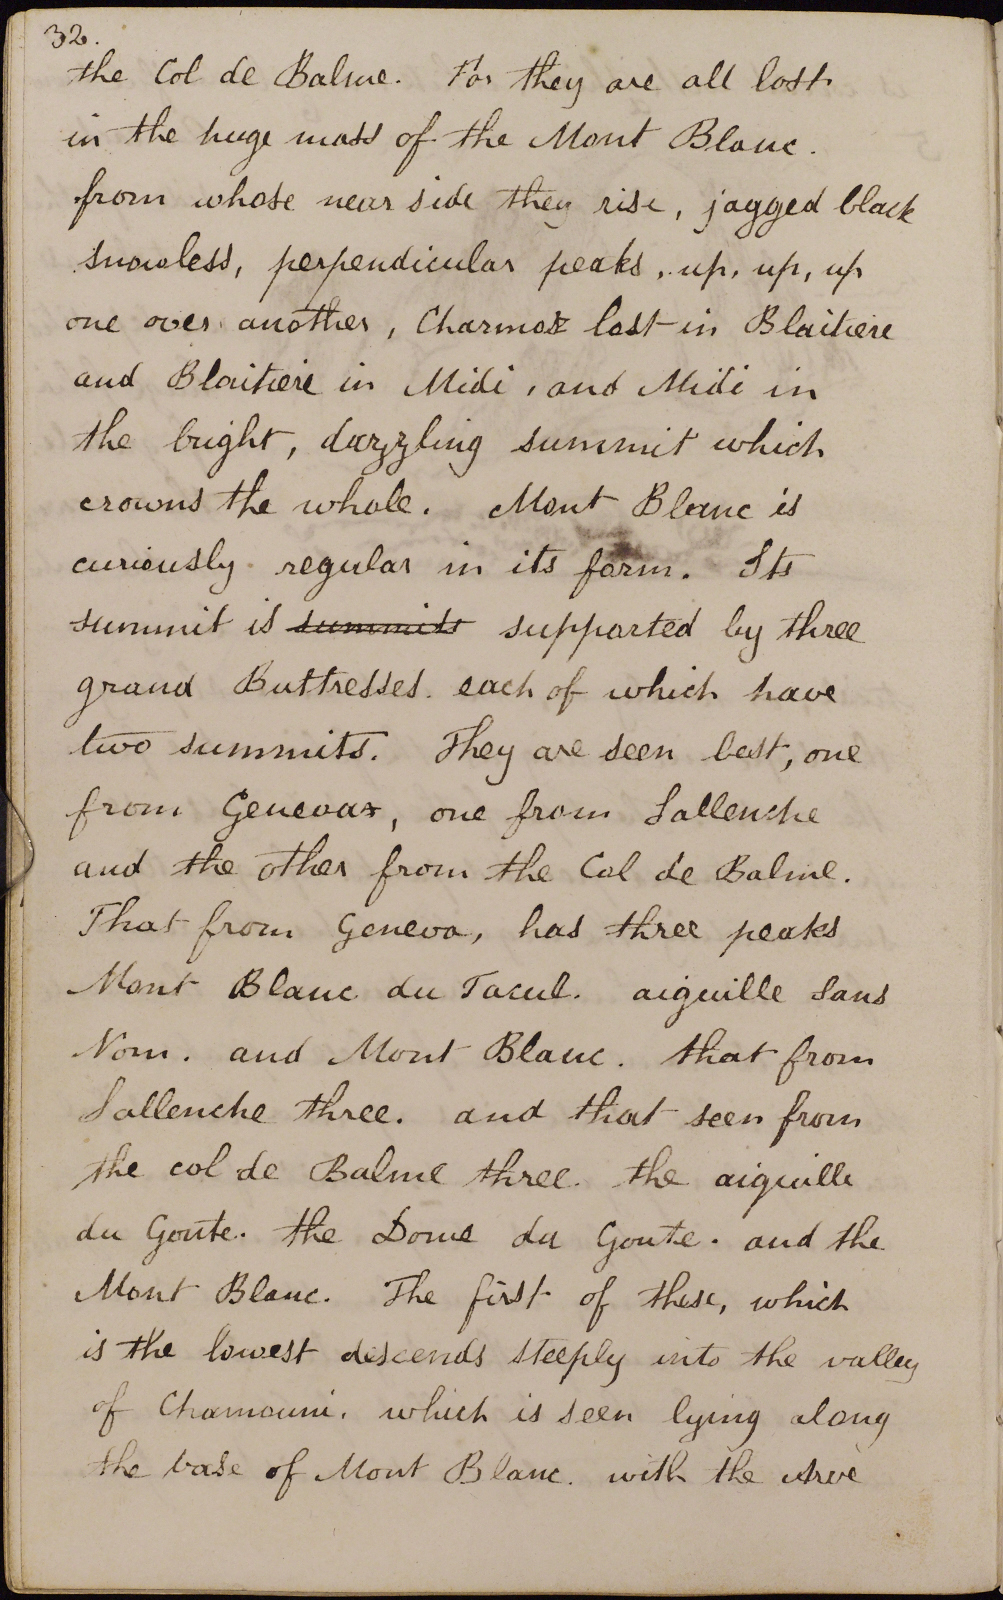 32.
the Col de Balme. For they are all lost
in the huge mass of the Mont Blanc.
from whose near side they rise, jagged black
snowless, perpendicular peaks, up, up, up
one over another, Charmoz lost in Blaitiere
and Blaitiere in Midi, and Midi in
the bright, dazzling summit which
crowns the whole. Mont Blanc is
curiously regular in its form. Its
summit is summits supported by three
grand Buttresses. each of which have
two summits. They are seen best, one
from Geneva, one from Sallenche
and the other from the Col de Balme.
That from Geneva, has three peaks
Mont Blanc du Tacul. aiguille Sans
Nom. and Mont Blanc. that from
Sallenche three. and that seen from
the col de Balme three. the aiguille
du Goute. the Dome du Goute. and the
Mont Blanc. The first of these, which
is the lowest descends steeply into the valley
of Chamouni. which is seen lying along
the base of Mont Blanc. with the Arve